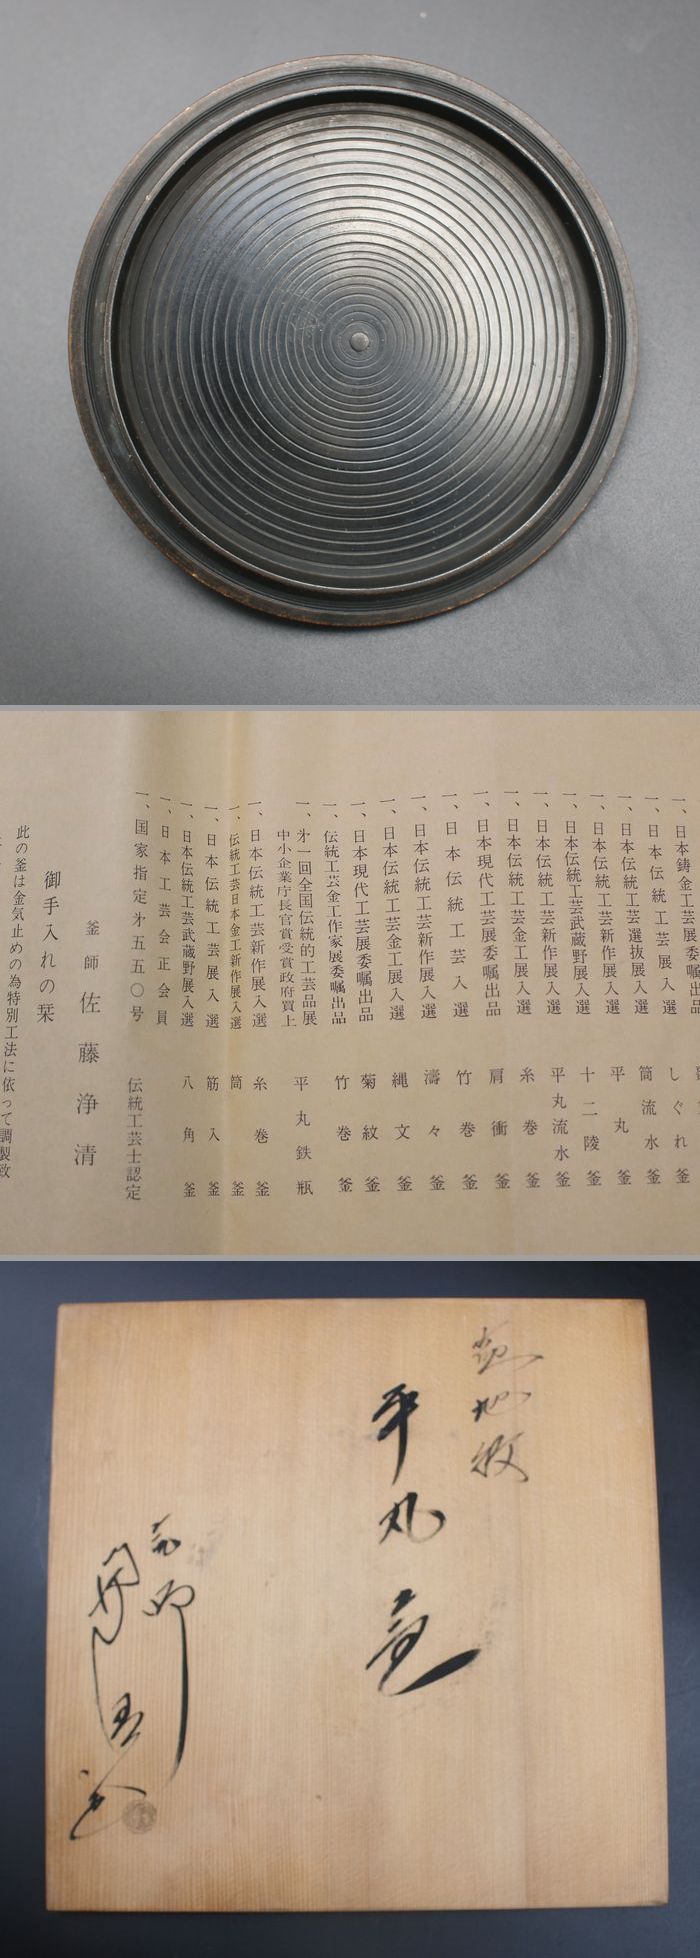 一、日本鋳金工芸展委嘱出品
一、日本伝統工芸展入選 しぐれ釜
一、日本伝統工芸選抜展入選 筒流水釜
一、日本伝統工芸新作展入選 平丸釜
一、日本伝統工芸武蔵野展入選 十二陵釜
一、日本伝統工芸新作展入選 平丸流水釜
一、日本伝統工芸金工展入選 糸巻釜
一、日本現代工芸展委嘱出品 肩衝釜
一、日本伝統工芸入選 竹巻釜
一、日本伝統工芸新作展入選 濤々釜
一、日本伝統工芸金工展入選 縄文釜
一、日本現代工芸展委嘱出品 菊紋釜
一、伝統工芸金工作家展委嘱出品 竹巻釜
一、第一回全国伝統的工芸品展
中小企業庁長官賞受賞政府買上 平丸鉄瓶
一、日本伝統工芸新作展入選 糸巻釜
一、伝統工芸日本金工新作展入選 筒釜
一、日本伝統工芸展入選 筋入釜
一、日本伝統工芸武蔵野展入選 八角釜
一、日本工芸会正会員
一、国家指定第五五〇号 伝統工芸士認定
釜師 佐藤浄清
御手入れの栞
此の釜は金気止めの為特別工法に依って調製致
地紋
平丸釜
釜師